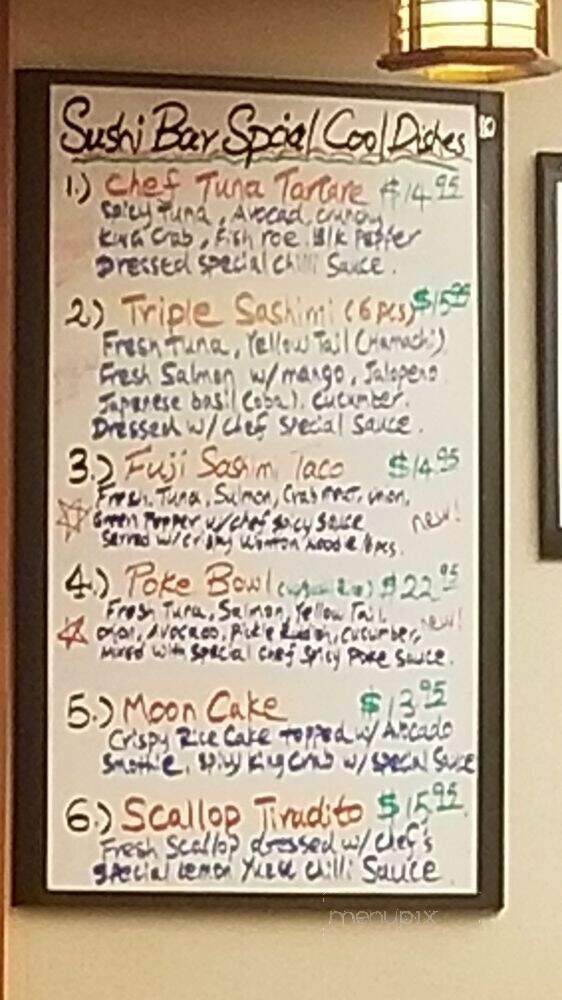 Sushi Bar Spcial Cool Dishes
1.) Chef Tuna Tartare $14.95
Spicy Tuna, Avocad, crunchy
King Crab, Fish roe. Blk Pepper
Dressed special chilli Sauce.
2.) Triple Sashimi (6 pcs) $15.95
Fresh Tuna, Yellow Tail (Hamachi)
Fresh Salmon w/ mango, Jalopeno
Japanese basil (oba). Cucumber.
Dressed w/ chef special Sauce.
3.) Fuji Sashimi Taco $14.95
Fresh Tuna, Salmon, Crab meat, onion,
Green Pepper w/chef spicy sauce new!
Served w/crispy wonton noodle pcs.
4.) Poke Bowl $22.95
Fresh Tuna, Salmon, Yellow Tail new!
onion, Avocado, Pickle Radish, Cucumber,
Mixed with special chef spicy Poke Sauce.
5.) Moon Cake $13.95
Crispy Rice Cake topped w/ Avocado
spicy King Crab w/special Sauce
6.) Scallop Tiradito $15.95
Fresh Scallop dressed w/ chef's
special Lemon chilli Sauce
menupix